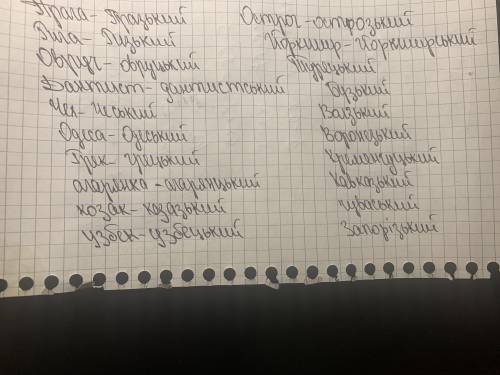 Прага - Празький
Рига - Ризький
Овруч - овруцький
Дантист - дантистський
Чех - Чеський
Одеса - Одеський
Грек - грецький
агаринка - агаринцький
козак - козазький
узбек - узбецький
Острог - острозький
Йоркшир - Йоркширський
Бузький
Воронезький
Кременчуцький
Кавказький
чуваський
Запорізький